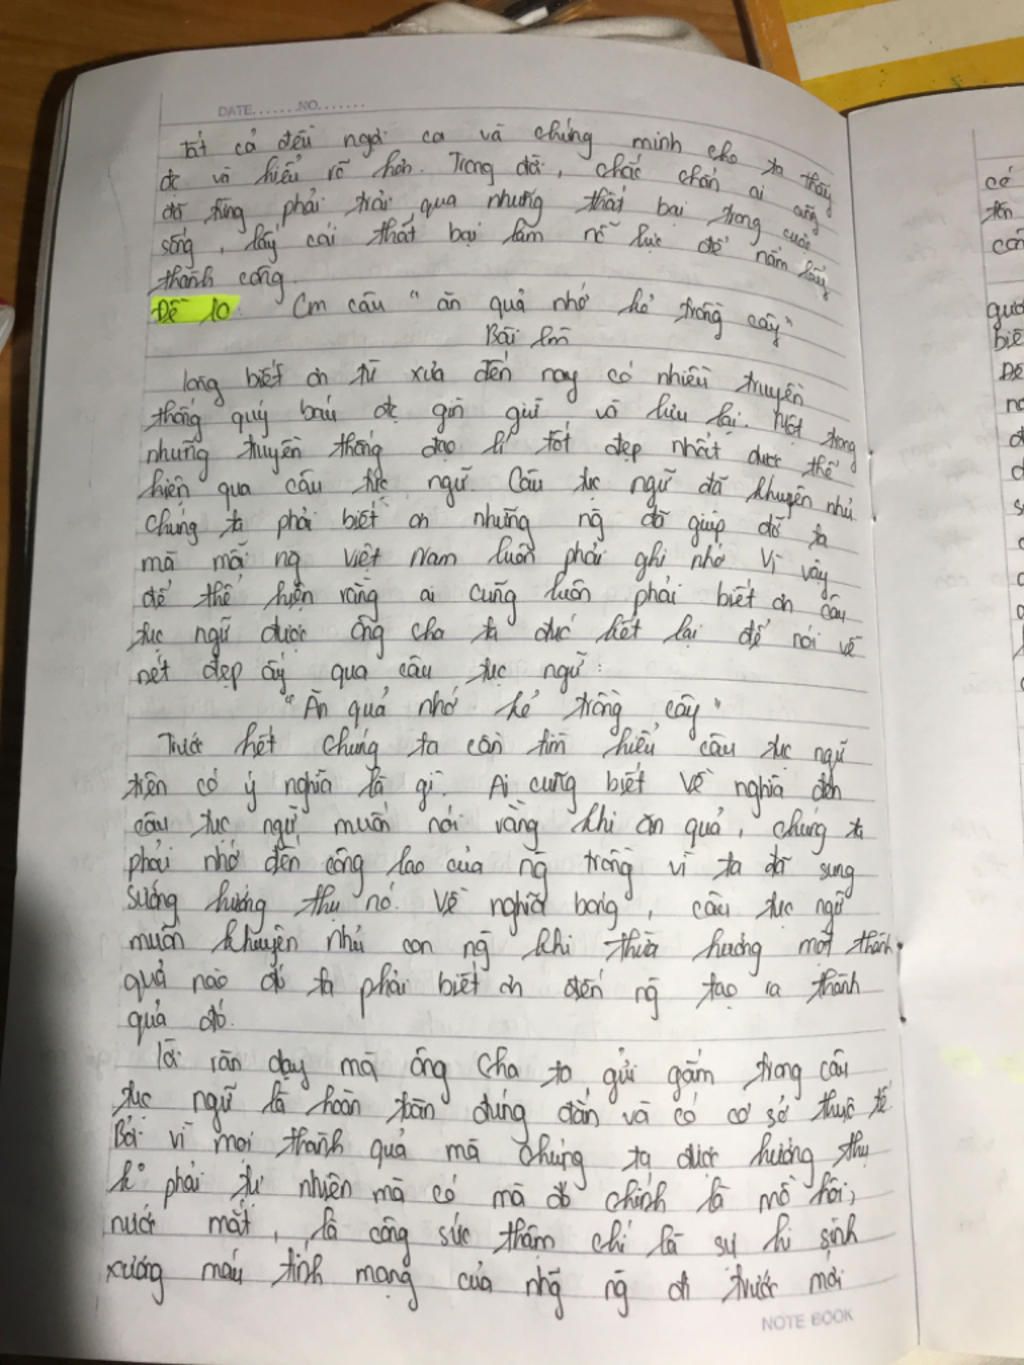 DATE.......NO.......
tất cả đều ngợi ca và chứng minh cho ta thấy
đc và hiểu rõ hơn. Trong đời, chắc chắn ai cũng
đã từng phải trải qua những thất bại trong cuộc
sống, lấy cái thất bại làm nỗ lực để nắm lấy
thành công.
Đề 10. Cm câu "ăn quả nhớ kẻ trồng cây"
Bài làm
lòng biết ơn từ xưa đến nay có nhiều truyền
thống quý báu đc gìn giữ và lưu lại. Một trong
những truyền thống đạo lí tốt đẹp nhất được thể
hiện qua câu tục ngữ. Câu tục ngữ đã khuyên nhủ
chúng ta phải biết ơn những ng đã giúp đỡ ta
mà mỗi ng việt Nam luôn phải ghi nhớ vì vậy
để thể hiện rằng ai cũng luôn phải biết ơn câu
tục ngữ được ông cha ta đúc kết lại để nói về
nét đẹp ấy qua câu tục ngữ:
"Ăn quả nhớ kẻ trồng cây"
Trước hết chúng ta cần tìm hiểu câu tục ngữ
trên có ý nghĩa là gì. Ai cũng biết về nghĩa đen
câu tục ngữ muốn nói rằng khi ăn quả, chúng ta
phải nhớ đến công lao của ng trồng vì ta đã sung
sướng hưởng thụ nó. Về nghĩa bóng, câu tục ngữ
muốn khuyên nhủ con ng khi thừa hưởng một thành
quả nào đó ta phải biết ơn đến ng tạo ra thành
quả đó.
lời răn dạy mà ông cha ta gửi gắm trong câu
tục ngữ là hoàn toàn đúng đắn và có cơ sở thực tế
Bởi vì mọi thành quả mà chúng ta được hưởng thụ
k° phải tự nhiên mà có mà đó chính là mồ hôi,
nước mắt, là công sức thậm chí là sự hi sinh
xương máu tính mạng của nhg ng đi trước mới
NOTE BOOK
có
gươ
biế